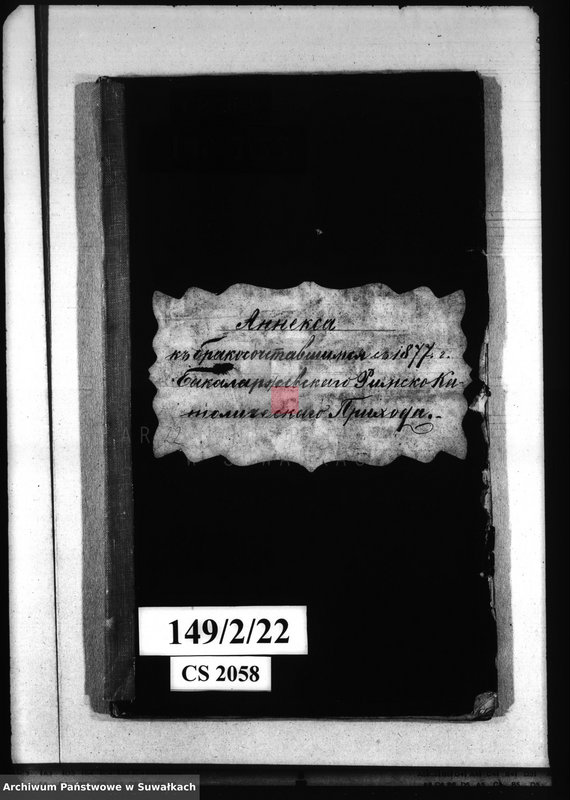 Аннекса
къ бракосочетавшимся съ 1877 г.
Бакаларжевскаго Римско Ка-
толическаго Прихода.
149/2/22
CS 2058
Archiwum Państwowe w Suwałkach